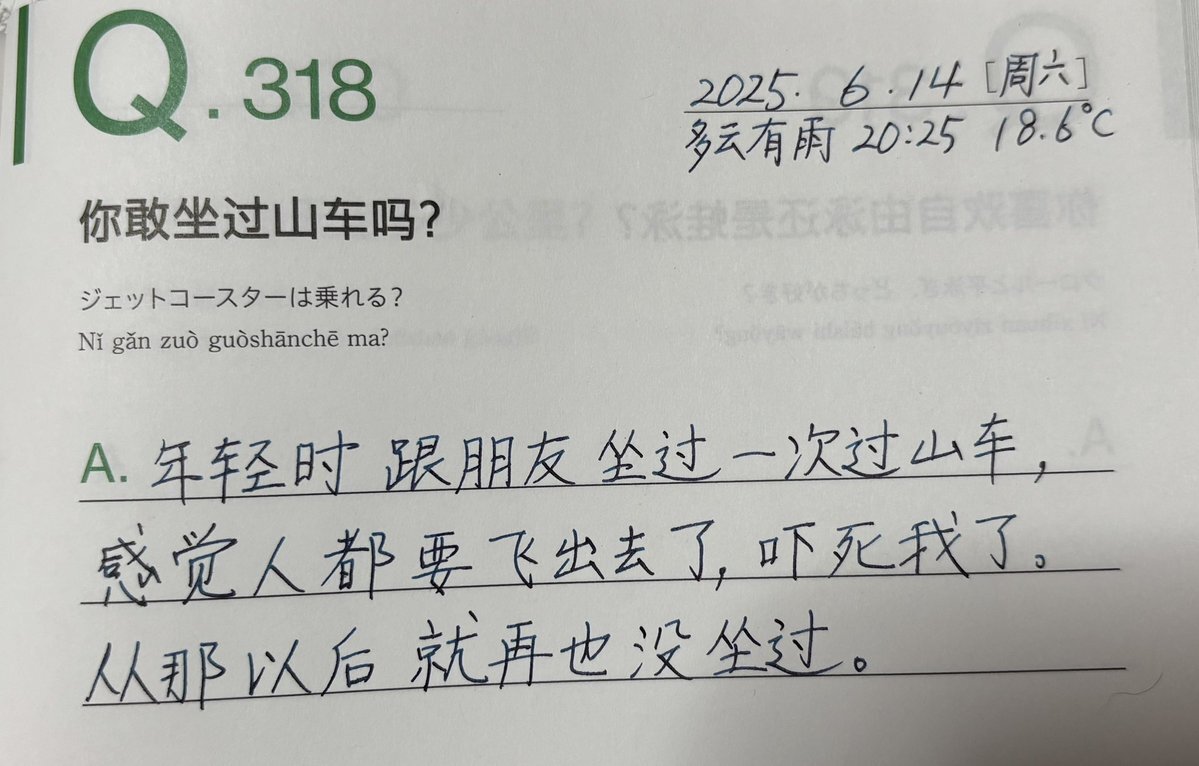 Q.318
2025. 6.14 [周六]
多云有雨 20:25 18.6°C
你敢坐过山车吗?
ジェットコースターは乗れる?
Nǐ gǎn zuò guòshānchē ma?
A. 年轻时 跟朋友 坐过一次过山车,
感觉人都要飞出去了, 吓死我了。
从那以后 就再也没坐过。